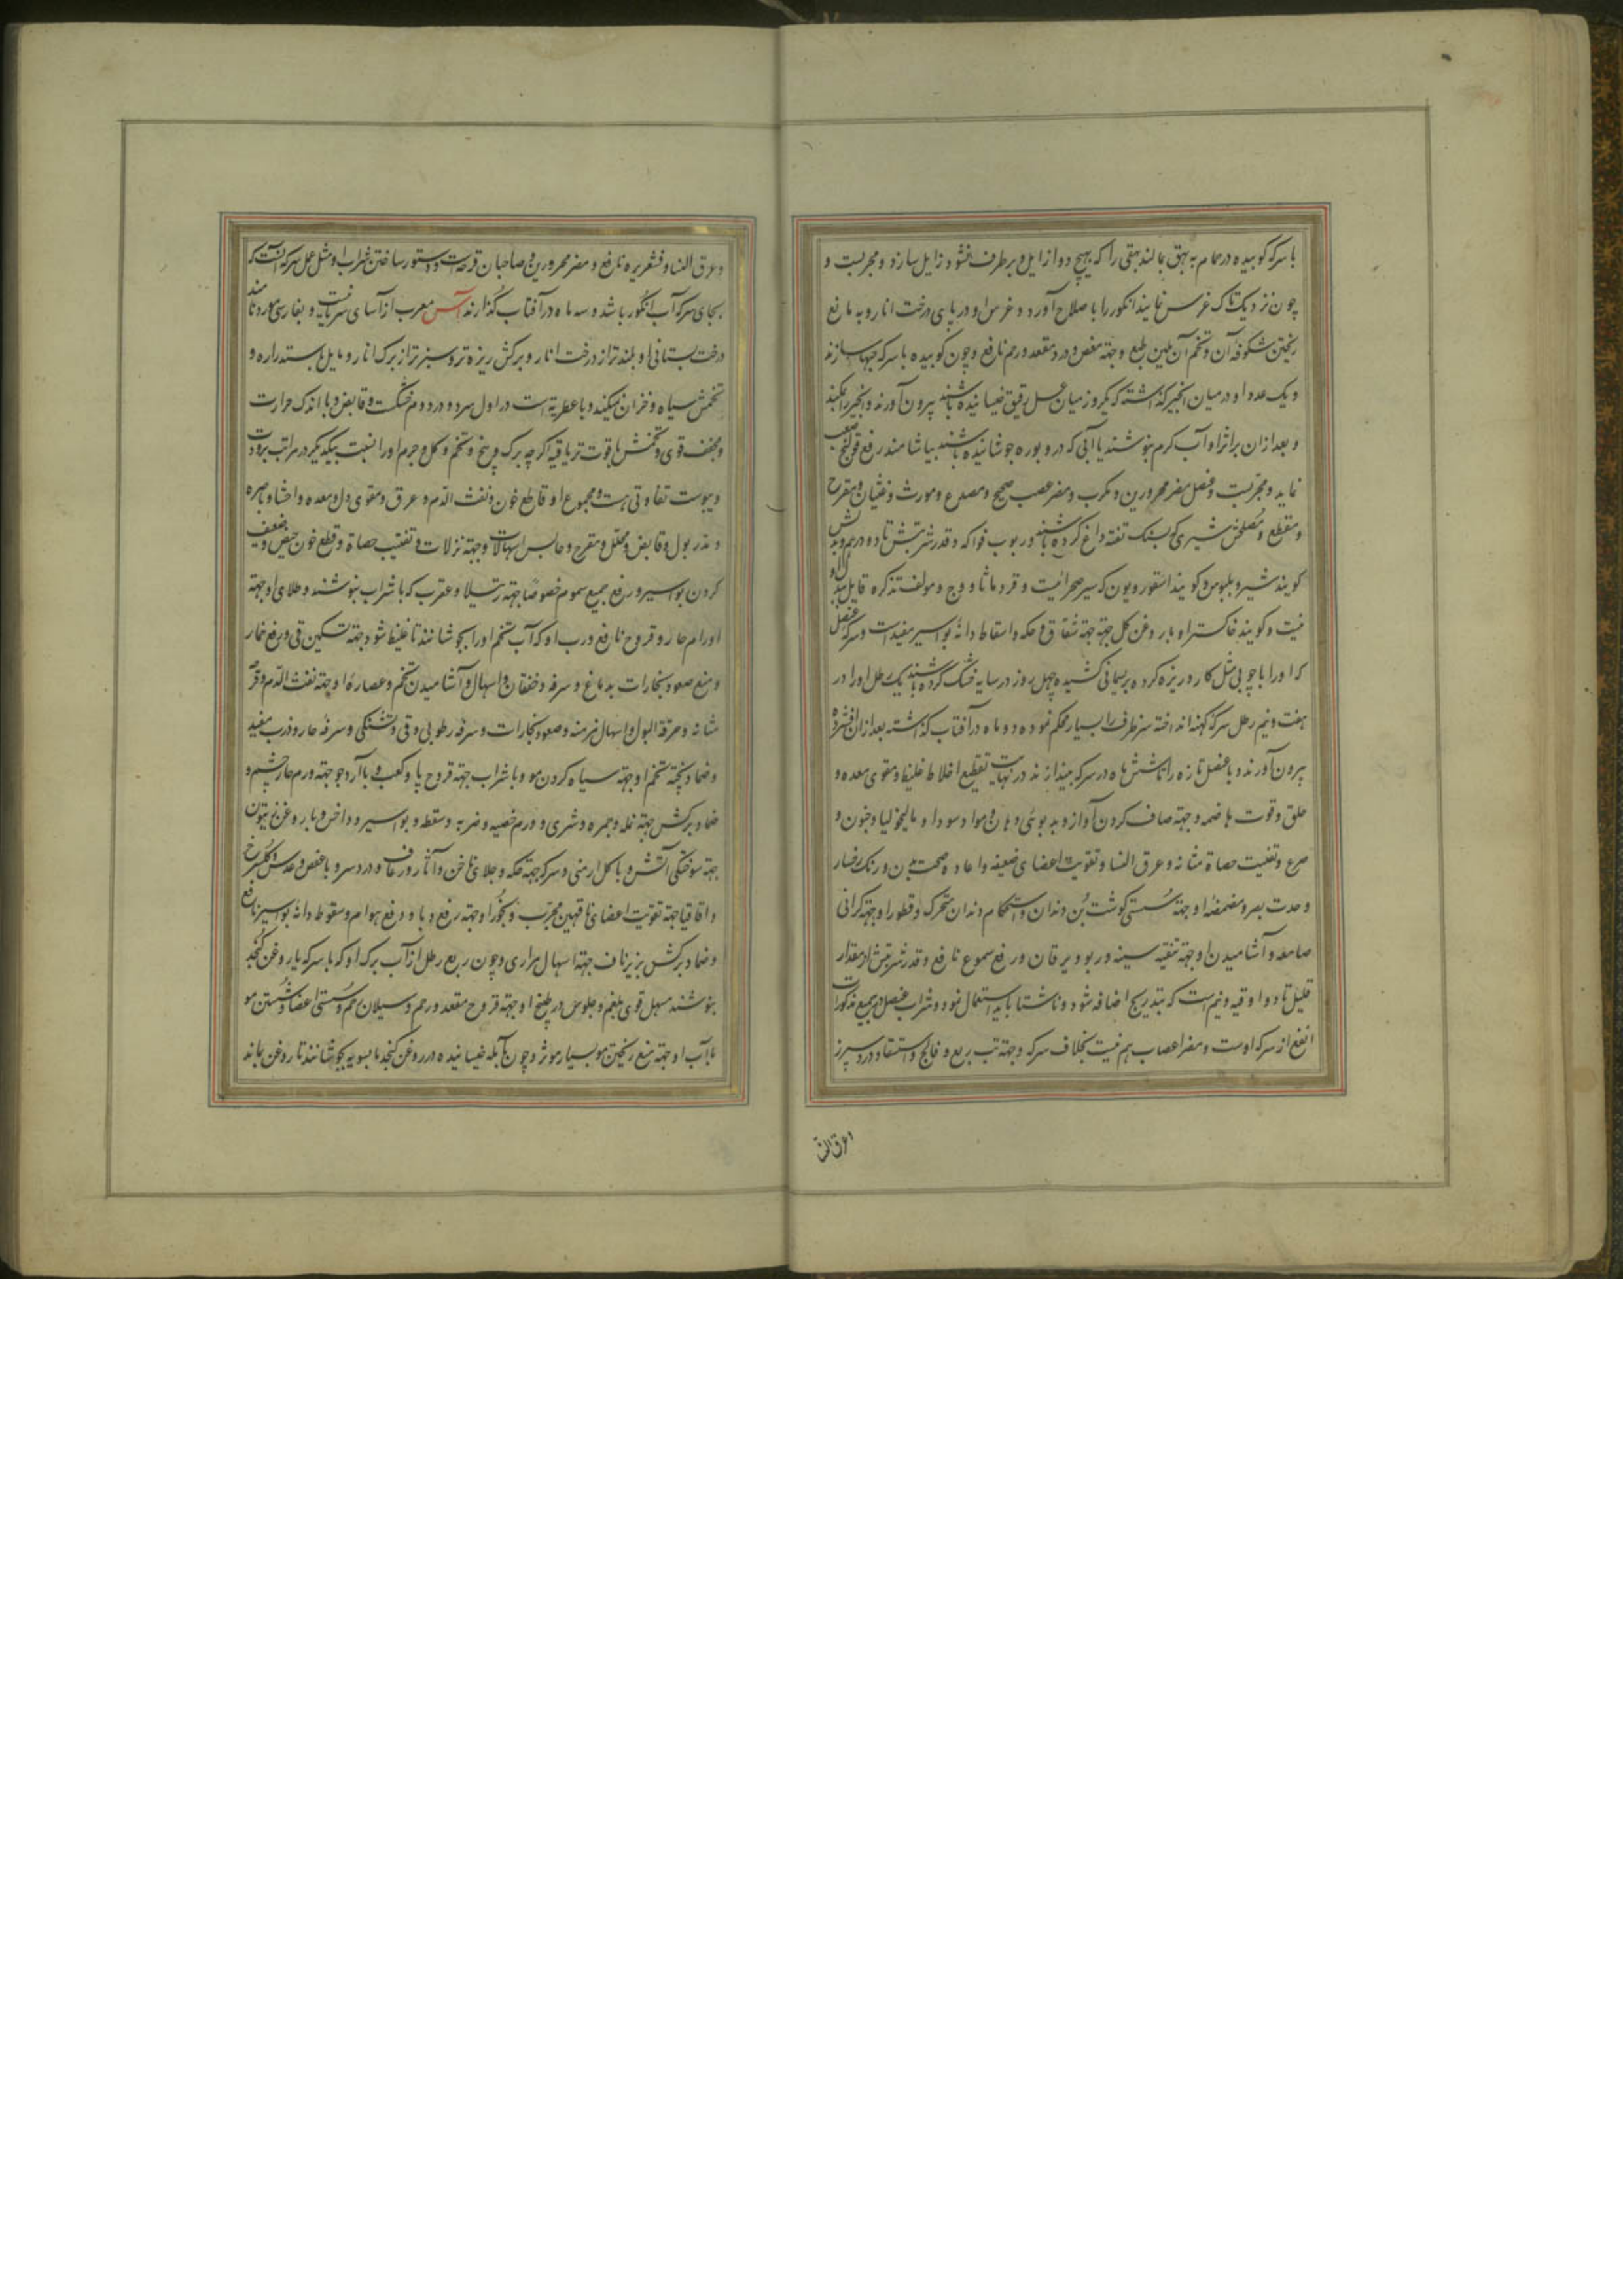 با سرکه کوبیده در حمام به بهق بمالند بهقی را که بهیچ دوا زایل و برطرف نشود زایل سازد و مجربست و
چون نزدیک تاک غرس نمایند انکور را با صلاح آورد و غرس او در پای درخت انار و به مانع
ریختن شکوفه آن و تخم آن ملین طبع و جهة مغص و درد مقعد و رحم نافع و چون کوبیده با سرکه حبها سازند
و یک عدد او در میان انجیر کذاشته که یکروز میان عسل رقیق خیسانیده باشند بیرون آورند و انجیر را بمکند
و بعد ازان بر اثر او آب کرم بنوشند یا آبی که در و بوره جوشانیده باشند بیاشامند رفع قولنج صعب
نماید و مجربست و عنصل مضر محرورین و مکرب و مضر عصب صحیح و مصدع و مورث و غثیان و مقرح
و مقطع و مصلحش شیری که بسنک تفته داغ کرده باشند و ربوب فواکه و قدر شربتش تا دو درهم و بدلش
کویند شیر و بلبوس و کویند اسقوردیون که سیر صحرائیست و قردمانا و وج و مولف تذکره قایل ببدل او
نیست و کویند خاکستر او با روغن کل جهة جهة شقاق و حکه و اسقاط دانهٔ بواسیر مفید است و سرکه عنصل
که او را با چوبی مثل کارد ریزه کرده بریسمانی کشیده چهل روز در سایه خشک کرده باشند یک رطل او را در
هفت و نیم رطل سرکه کهنه انداخته سر ظرف را بسیار محکم نموده دو ماه در آفتاب کذاشته بعد ازان افشرده
بیرون آورند و یا عنصل تازه را تا شش ماه در سرکه بیندازند در نهایت تقطیع اخلاط غلیظ و مقوی معده و
حلق و قوت هاضمه و جهة صاف کردن آواز و بد بوئی دهان و مواد سودا و مالیخولیا و جنون و
صرع و تفتیت حصاة مثانه و عرق النسا و تقویت اعضای ضعیفه و اعاده صحت بدن و رنک رخسار
و حدت بصر و مضمضهٔ او جهة سستی کوشت بن دندان و استحکام دندان متحرک و قطور او جهة کرانی
سامعه و آشامیدن او جهة تنقیه سینه و ربو و یرقان و رفع سموم نافع و قدر شربتش از مقدار
قلیل تا دو اوقیه و نیم است که بتدریج اضافه شود و ناشتا باید استعمال نمود و شراب عنصل در جمیع مذکورات
انفع از سرکه اوست و مضر اعصاب هم نیست بخلاف سرکه و جهة تب ربع و فالج و استسقا و درد سپرز
و عرق النسا
و عرق النسا و قشعریره نافع و مضر محرورین و صاحبان قرحه است و دستور ساختن شراب او مثل عمل سرکه است که
بجای سرکه آب انکور باشد و سه ماه در آفتاب کذارند آس معرب از آسای سریانیست و بفارسی مورد نامند
درخت بستانی او بلندتر از درخت انار و برکش ریزه تر و سبزتر از برک انار و مایل باستداره و
تخمش سیاه و خزان نمیکند و با عطریة است در اول سرد و در دوم خشکست و قابض و با اندک حرارت
و مجفف قوی و تخمش با قوت تریاقیه اکرچه برک و بیخ و تخم و کل و جرم او را نسبت بیکدیکر در مراتب برودت
و یبوست تفاوتی هست و مجموع او قاطع خون و نفث الدم و عرق و مقوی دل و معده و احشا و باصره
و مدر بول و قابض و محلل و مفرح و حابس اسهالات و جهة نزلات و تفتیت حصاة و قطع خون حیض و ضعیف
کردن بواسیر و رفع جمیع سموم خصوصا جهة رتیلا و عقرب که با شراب بنوشند و طلای او جهة
اورام حاره و قروح نافع و رب او که آب تخم او را بجوشانند تا غلیظ شود جهة تسکین قی و رفع خمار
و منع صعود بخارات بدماغ و سرفه و خفقان و اسهال و آشامیدن تخم و عصارهٔ او جهة نفث الدم و قرحه
مثانه و حرقة البول و اسهال مزمنه و صعود بخارات و سرفه رطوبی و قی و تشنکی و سرفه حار و ذرب مفید
و ضماد پخته تخم او جهة سیاه کردن مو و با شراب جهة قروح پا و کعب و با آرد جو جهة ورم حار چشم و
ضماد برکش جهة نمله و جمره و شری و ورم خصیه و ضربه و سقطه و بواسیر و داخس و با روغن زیتون
جهة سوختکی آتش و با کل ارمنی و سرکه جهة حکه و جلای ناخن و آثار و رعاف و درد سر و با عفص و عدس و کل سرخ
و اقاقیا جهة تقویت اعضای ناقهین مجرب و بخور او جهة رفع وبا و رفع هوام و سقوط دانهٔ بواسیر نافع
و ضماد برکش بزیر ناف جهة اسهال مراری و چون ربع رطل از آب برک او که با سرکه یا روغن کنجد
بنوشند مسهل قوی بلغم و جلوس در طبیخ او جهة قروح مقعد و رحم و سیلان رحم و سستی اعضا و شستن مو
با آب او جهة منع ریختن مو بسیار موثر و چون با آمله خیسانیده در روغن کنجد بالسویه بجوشانند تا روغن بماند